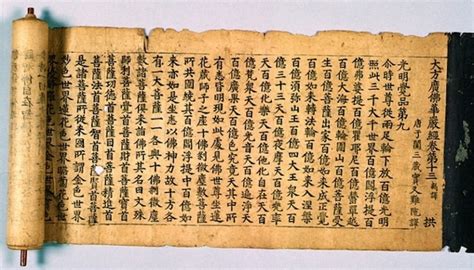 大方廣佛華嚴經卷第十三 新譯
唐于闐三藏實叉難陀譯 拱
光明覺品第九
尒時世尊從兩足輪下放百億光明
照此三千大千世界百億閻浮提
百億弗婆提百億瞿耶尼百億鬱單越
百億大海百億輪圍山百億菩薩受
生百億菩薩出家百億如來成正覺
百億如來轉法輪百億如來入涅槃
百億須弥山王百億四天王衆天百
億三十三天百億夜摩天百億兜率
天百億化樂天百億他化自在天百
億梵衆天百億光音天百億遍淨天
百億廣果天百億色究竟天其中所
有悉皆明現如此處見佛世尊坐蓮
花藏師子之座十佛刹微塵數菩薩
所共圍遶其百億閻浮提中百億如
來亦如是坐悉以佛神力故十方各
有一大菩薩一一各與十佛刹微塵
數諸菩薩俱來詣佛所其名曰文殊
師利菩薩覺首菩薩財首菩薩寶首
菩薩功德首菩薩目首菩薩精進首
菩薩法首菩薩智首菩薩賢首菩薩
是諸菩薩所從來國所謂金色世界
妙色世界蓮花色世界